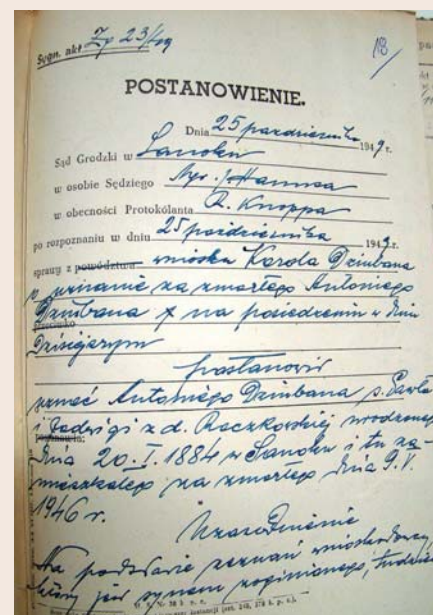 18
Sygn. akt Zg 23/49
POSTANOWIENIE.
Dnia 25 października 1949 r.
Sąd Grodzki w Sanoku
w osobie Sędziego Mgr. J.
w obecności Protokólanta R. Knoppa
po rozpoznaniu w dniu 25 października 1949 r.
sprawy z powództwa wniosku Karola Dziubana
o uznanie za zmarłego Antoniego
Dziubana na posiedzeniu w dniu
przeciwko
Dzisiejszym
postanowił
uznać Antoniego Dziubana s. Pawła
i Jadwigi z d. Raczkowskiej urodzonego
dnia 20. I. 1884 w Sanoku i tu za-
mieszkałego za zmarłego dnia 9. V.
1946 r.
Uzasadnienie
Na podstawie zeznań wnioskodawcy,
który jest synem zaginionego, tudzież